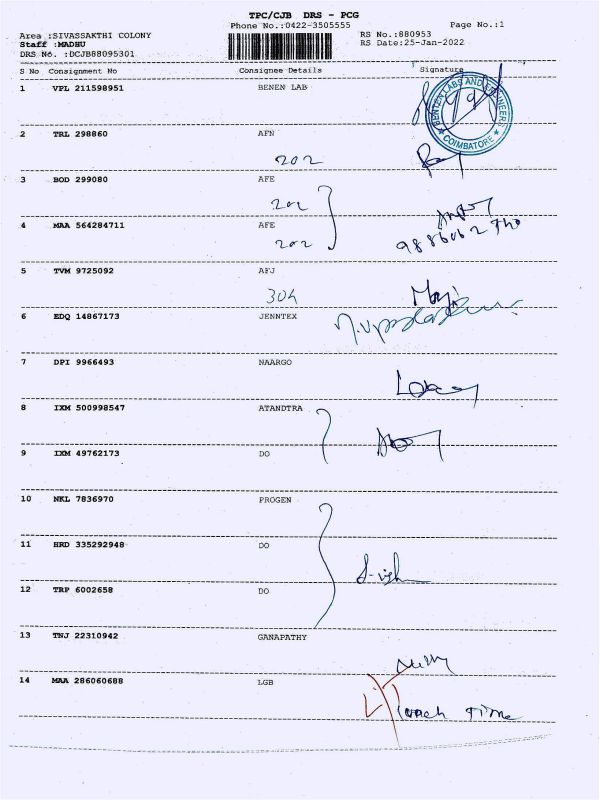 TPC/CJB DRS - PCG
Phone No.:0422-3505555 Page No.:1
Area :SIVASSAKTHI COLONY RS No.:880953
Staff :MADHU RS Date:25-Jan-2022
DRS No. :DCJB88095301
S No Consignment No Consignee Details Signature
1 VPL 211598951 BENEN LAB
BENTEN LABS AND ENGINEERS
COIMBATORE
2 TRL 298860 AFN
202
3 BOD 299080 AFE
202
4 MAA 564284711 AFE
202
5 TVM 9725092 AFJ
304
6 EDQ 14867173 JENNTEX
7 DPI 9966493 NAARGO
8 IXM 500998547 ATANDTRA
9 IXM 49762173 DO
10 NKL 7836970 PROGEN
11 HRD 335292948 DO
12 TRP 6002658 DO
13 TNJ 22310942 GANAPATHY
14 MAA 286060688 LGB
Lunch Time